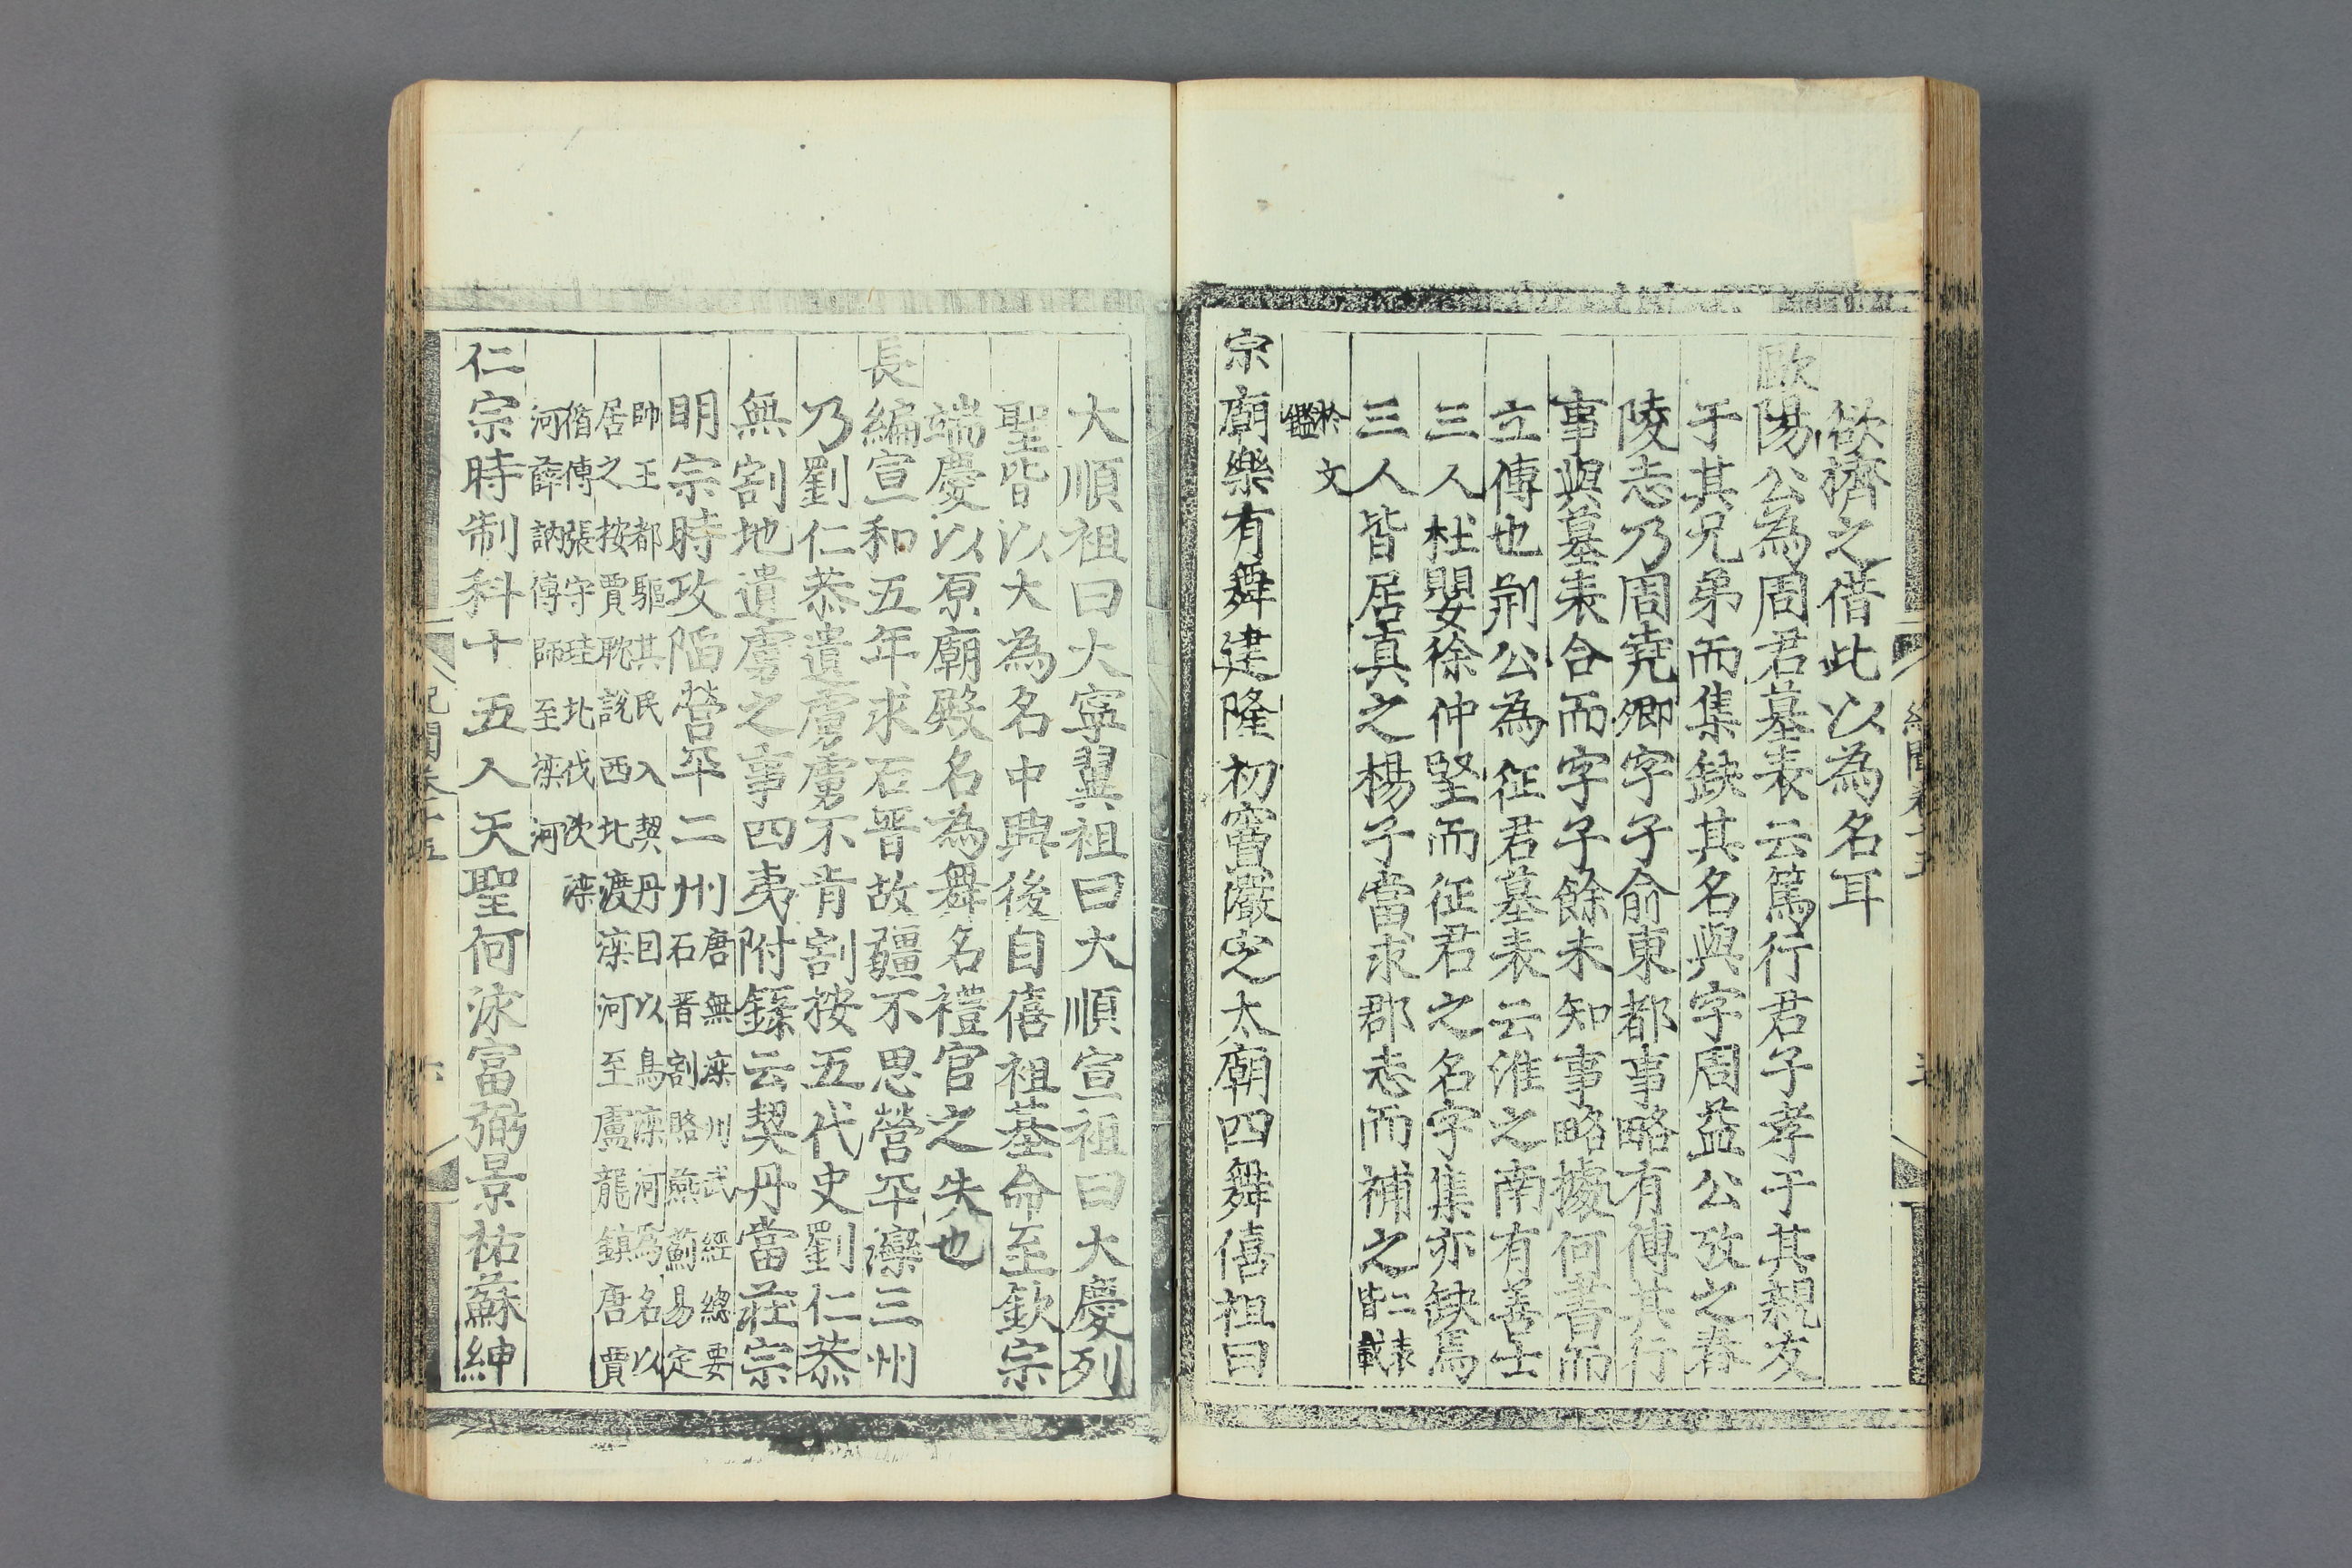 欲擠之借此以為名耳
歐陽公為周君墓表云篤行君子孝于其親友
于其兄弟而集缺其名與字周益公攷之舂
陵志乃周堯卿字子俞東都事略有傳其行
事與墓表合而字子餘未知事略據何書而
立傳也荆公為征君墓表云淮之南有善士
三人杜嬰徐仲堅而征君之名字集亦缺焉
三人皆居真之楊子當求郡志而補之二表皆載
於文鑑
宗廟樂有舞建隆初竇儼定太廟四舞僖祖曰
大順祖曰大寧翼祖曰大順宣祖曰大慶列
聖皆以大為名中興後自僖祖基命至欽宗
端慶以原廟殿名為舞名禮官之失也
長編宣和五年求石晉故疆不思營平灤三州
乃劉仁恭遺虜虜不肯割按五代史劉仁恭
無割地遺虜之事四夷附錄云契丹當莊宗
明宗時攻陷營平二州唐無灤州武經總要石晉割賂燕薊易定
帥王都驅其民入契丹因以烏灤河為名以居之按賈耽說西北渡灤河至盧龍鎮唐賈
循傳張守珪北伐次灤河薛訥傳師至灤河
仁宗時制科十五人天聖何泳富弼景祐蘇紳
紀聞卷十五